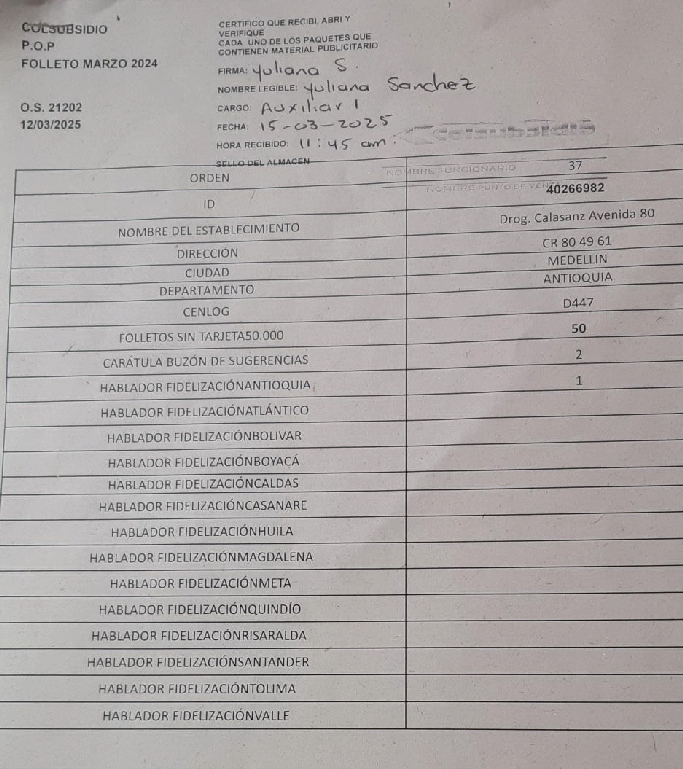 COLSUBSIDIO
P.O.P
FOLLETO MARZO 2024
O.S. 21202
12/03/2025
CERTIFICO QUE RECIBI, ABRI Y
VERIFIQUE
CADA UNO DE LOS PAQUETES QUE
CONTIENEN MATERIAL PUBLICITARIO
FIRMA: Yuliana S.
NOMBRE LEGIBLE: Yuliana Sanchez
CARGO: Auxiliar 1
FECHA: 15-03-2025
HORA RECIBIDO: 11:45 am.
colsubsidio
SELLO DEL ALMACEN
NOMBRE FUNCIONARIO
ORDEN 37
ID 40266982
NOMBRE DEL ESTABLECIMIENTO Drog. Calasanz Avenida 80
DIRECCIÓN CR 80 49 61
CIUDAD MEDELLIN
DEPARTAMENTO ANTIOQUIA
CENLOG D447
FOLLETOS SIN TARJETA50.000 50
CARÁTULA BUZÓN DE SUGERENCIAS 2
HABLADOR FIDELIZACIÓNANTIOQUIA 1
HABLADOR FIDELIZACIÓNATLÁNTICO
HABLADOR FIDELIZACIÓNBOLIVAR
HABLADOR FIDELIZACIÓNBOYACÁ
HABLADOR FIDELIZACIÓNCALDAS
HABLADOR FIDELIZACIÓNCASANARE
HABLADOR FIDELIZACIÓNHUILA
HABLADOR FIDELIZACIÓNMAGDALENA
HABLADOR FIDELIZACIÓNMETA
HABLADOR FIDELIZACIÓNQUINDÍO
HABLADOR FIDELIZACIÓNRISARALDA
HABLADOR FIDELIZACIÓNSANTANDER
HABLADOR FIDELIZACIÓNTOLIMA
HABLADOR FIDELIZACIÓNVALLE